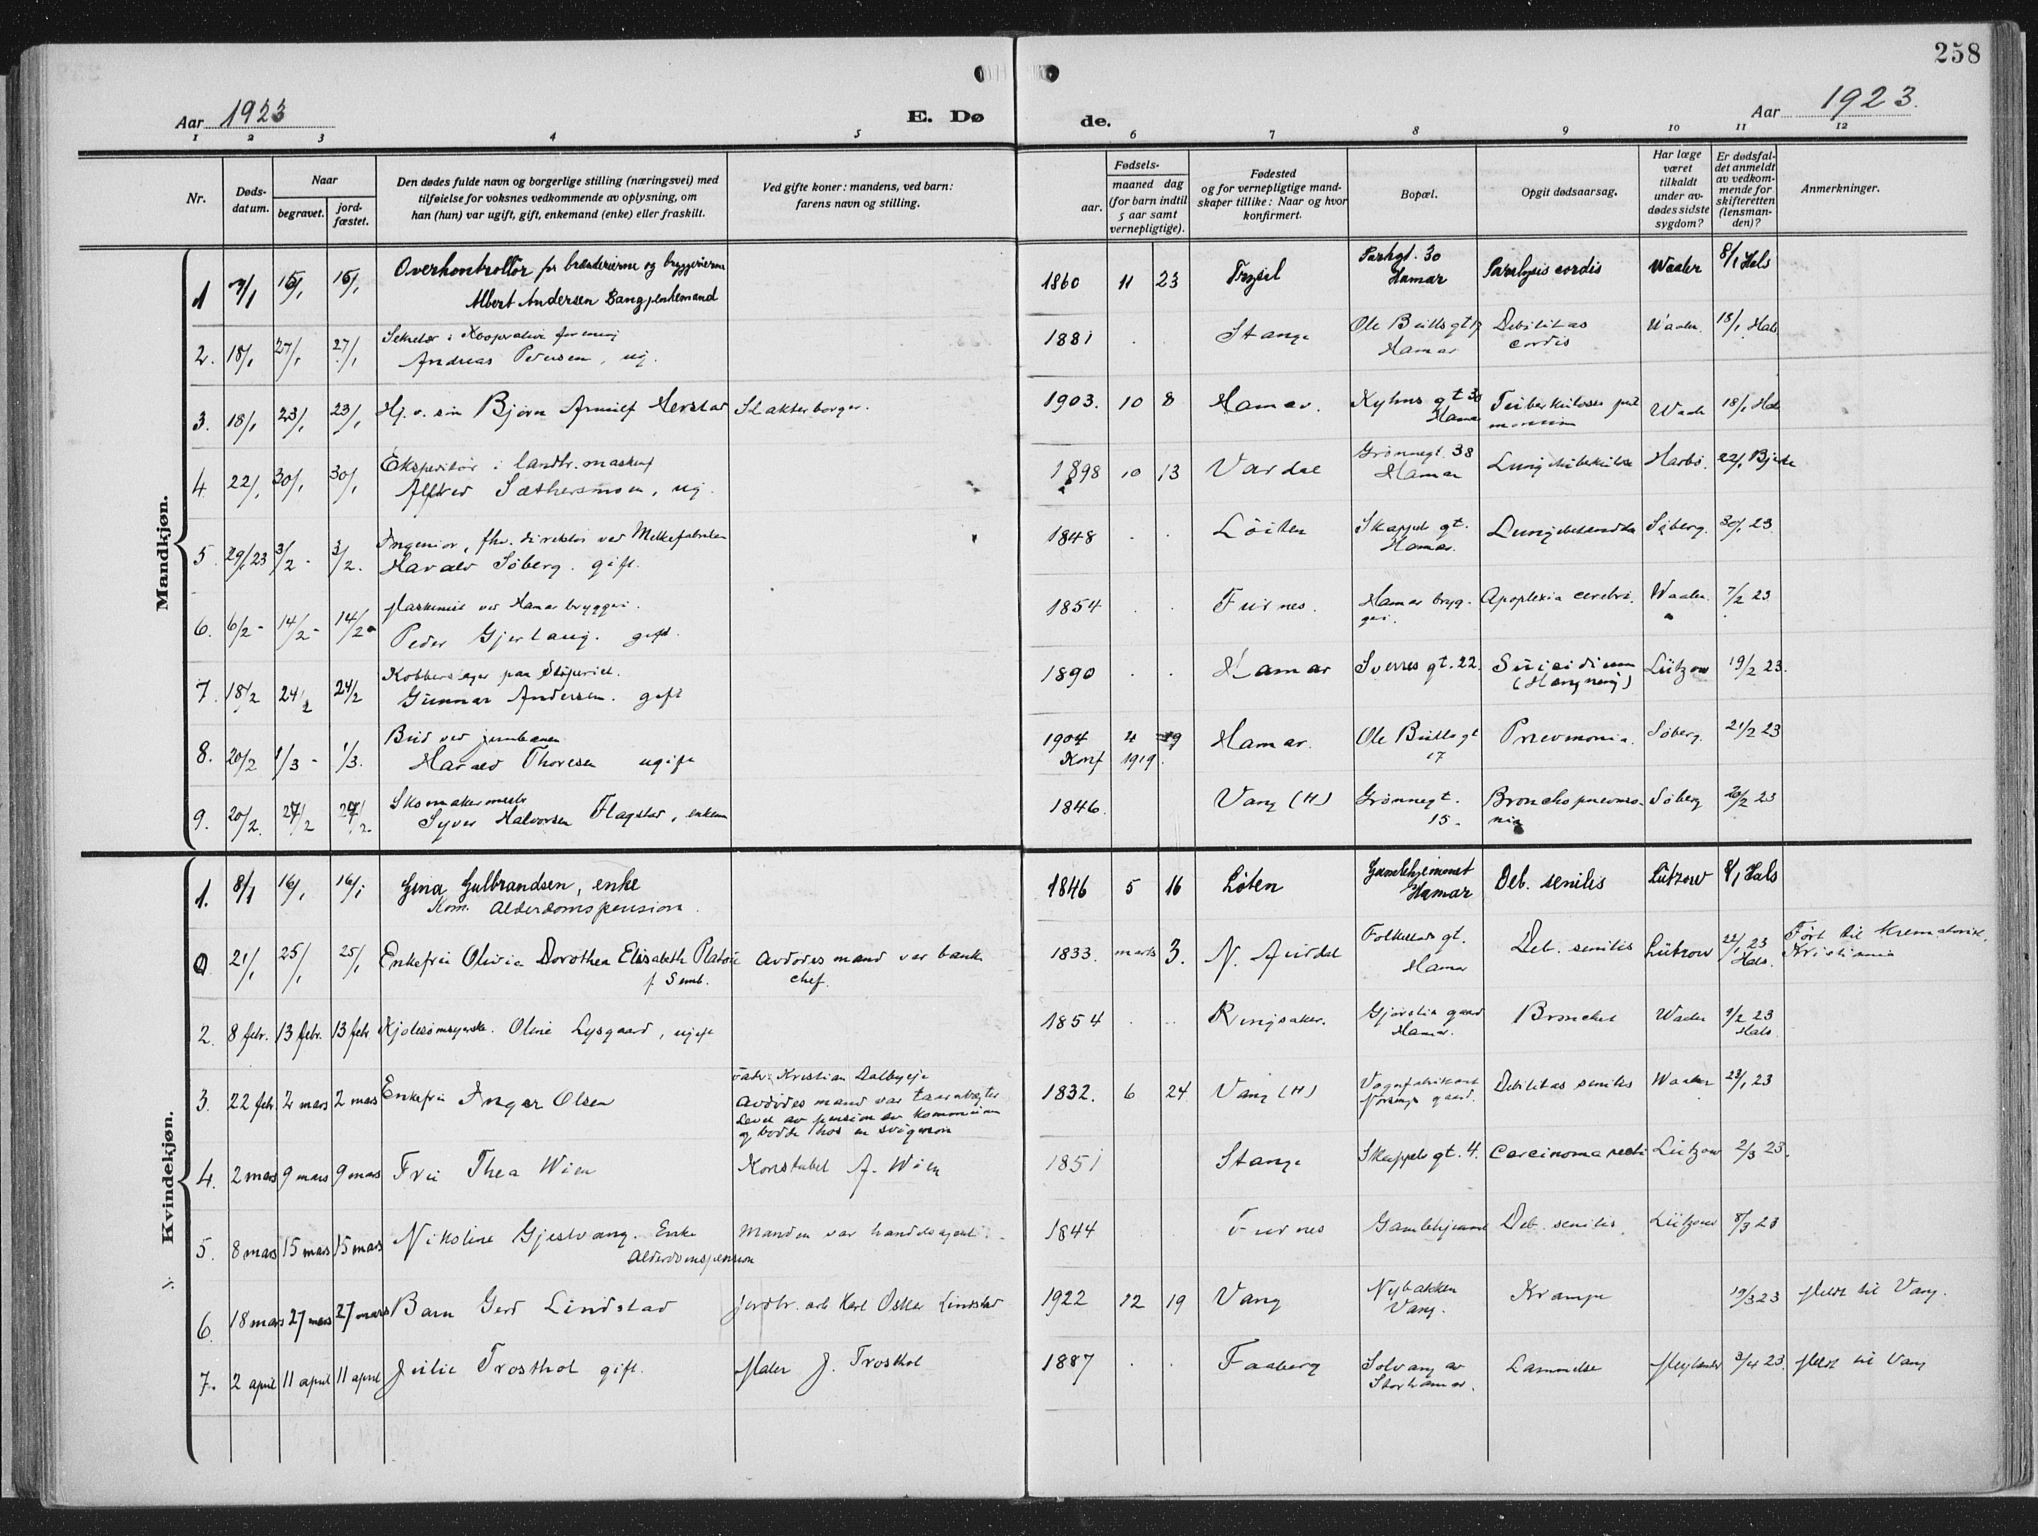 258
Aar 1923
E. Dø
de.
Aar 1923.
1 2 3 4 5 6 7 8 9 10 11 12
Nr.
Døds-
datum.
Naar
begravet.
jord-
fæstet.
Den dødes fulde navn og borgerlige stilling (næringsvei) med
tilføielse for voksnes vedkommende av oplysning, om
han (hun) var ugift, gift, enkemand (enke) eller fraskilt.
Ved gifte koner: mandens, ved barn:
farens navn og stilling.
Fødsels-
aar.
maaned dag
(for barn indtil
5 aar samt
vernepligtige).
Fødested
og for vernepligtige mand-
skaper tillike: Naar og hvor
konfirmert.
Bopæl.
Opgit dødsaarsag.
Har læge
været
tilkaldt
under av-
dødes sidste
sygdom?
Er dødsfal-
det anmeldt
av vedkom-
mende for
skifteretten
(lensman-
den)?
Anmerkninger.
Mandkjøn.
Overkontrollør for brænderierne og bryggerierne Parkgt. 30
1 7/1 15/1 15/1 Albert Andersen Bang, enkemand 1860 11 23 Trysil Hamar Paralysis cordis Waaler 8/1 Hals
Sekretær i Kooperative forening Ole Bullsgt 17 Debilitas
2. 18/1 27/1 27/1 Andreas Pedersen, ug. 1881 . . Stange Hamar cordis Waaler. 18/1 Hals
3. 18/1 23/1 23/1 Hj.v. søn Bjørn Arnulf Herstad Slakterborger. 1903. 10 8 Hamar. Kyhns gt 30 Tuberkulose pul
Hamar monum 18/1 Hals
Ekspeditør i landbr. maskinf Grønnegt. 38
4 22/1 30/1 30/1 Alfred Sæthersmoen, ug. 1898 10 13 Vardal Hamar Lungetuberkulose Harbo. 22/1 Bjerke
Ingeniør, fhv. direktør ved Melkefabriken Skappels gt.
5. 29/1 23 3/2 - 3/2. Harald Søberg. gift. 1848 . . Løiten Hamar. Søberg. 30/1 23
Maskinist ved Hamar bryggeri. Hamar bryg-
6. 6/2 - 14/2 - 14/2 - Peder Gjerlaug. gift. 1854 . . Furnes. geri. Apoplexia cerebri. Waaler. 7/2 23
Kobberslager paa Støperiet.
7. 18/2 24/2 24/2 Gunnar Andersen. gift 1890 . . Hamar Sverres gt. 22. Suicidium Lützow 19/2 23.
(Hængning)
Bud ved jernbanen
8. 20/2 1/3 - 1/3. Harald Thoresen ugift 1904 4 Hamar. Ole Bulls gt Pneumonia. Søberg. 21/2 23
Konf 1919. 17
Skomakermestr
9. 20/2. 27/2 27/2 Syver Halvorsen Flagstad, enkem 1846. Vang (H) Grønnegt. Bronchopneumo- Søberg 20/2 23
15. nia
Kvindekjøn.
1. 8/1 16/1 16/1 Gina Gulbrandsen, enke 1846 5 16 Løten Gamlehjemmet Deb. senilis Lützow 8/1 Hals
Kom. Alderdomspension. Hamar
21/1 25/1 25/1 Enkefru Olivia Dorothea Elisabeth Platou Avdødes mand var bank 1833. mars 3. N. Aurdal Folkestads gt. Deb. senilis Lützow 22/1 23 Ført til Krematoriet,
f. Semb. chef. Hamar Hals. Kristiania
2. 8 febr. 13 febr. 13 febr Kjolesømsyerske. Oline Lysgaard, ugift 1854 . . Ringsaker. gaard Waaler 9/2 23
Hamar. Hals.
fader: Kristian Dalbyeje
3. 22 febr 2 mars 2 mars Enkefru Inger Olsen Avdødes mand var taarnvægter 1832. 6 24 Vang (H) Vognfabrikant Debilitas senilis Waaler 23/1 23
Levet av pension av kommunen gaard.
og bodde hos en svigersøn
4. 2 mars 9 mars 9 mars Fru Thea Wien Konstabel A. Wien 1851 Stange Skappels gt. 4. Carcinoma recti Lützow 2/3 23.
5. 8 mars 15 mars 15 mars Nikoline Gjestvang. Enke Manden var handelsagent. 1844 Furnes Gamlehjemmet Deb. senilis. Lützow 8/3 23
Alderdomspension
6. 18 mars 27 mars 27 mars Barn Gerd Lindstad jordbr. arb Karl Oskar Lindstad 1922 12 19 Vang Nybakken Krampe 19/3 23 Meldt til Vang.
Vang.
7. 2 april 11 april 11 april Julie Trosthol gift. Maler J. Trosthol 1887 . . Faaberg Solvang av Lammelse 3/4 23. Meldt til Vang
Storhamar.